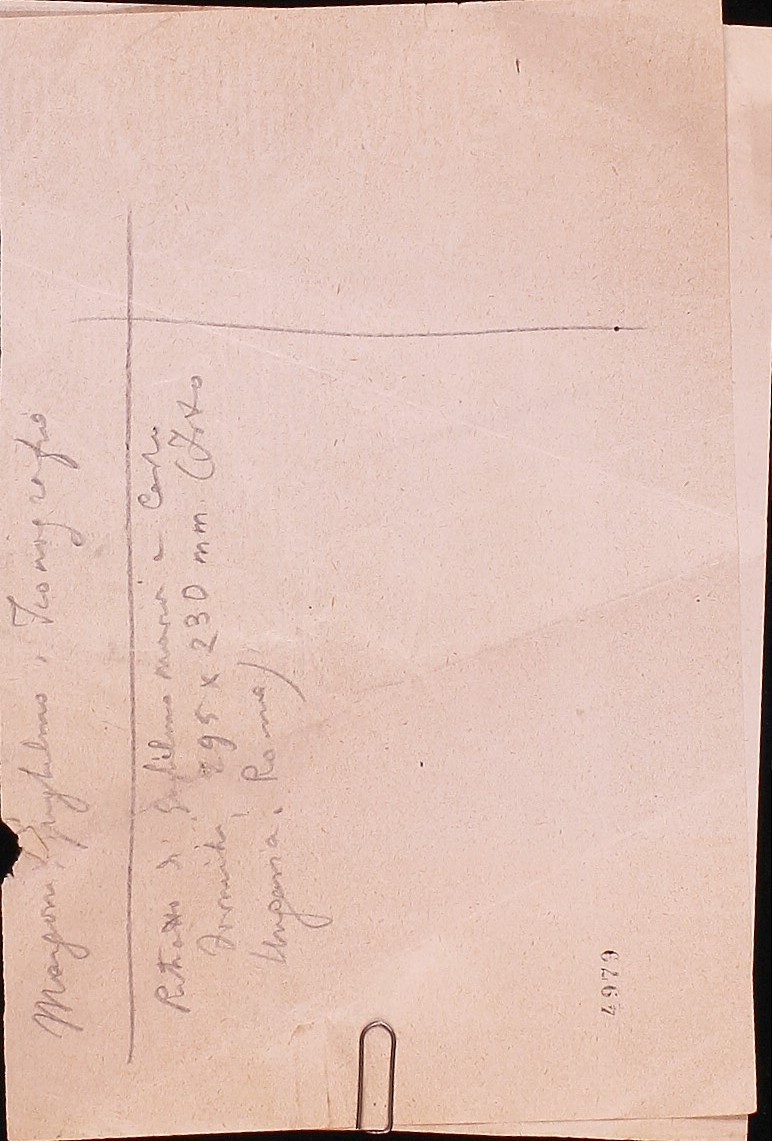 Mangona, Guglielmo, Iconografia
Ritratto di Guglielmo Maria e Carlo
295 x 230 mm. (Foto
Ungania, Roma)
4979